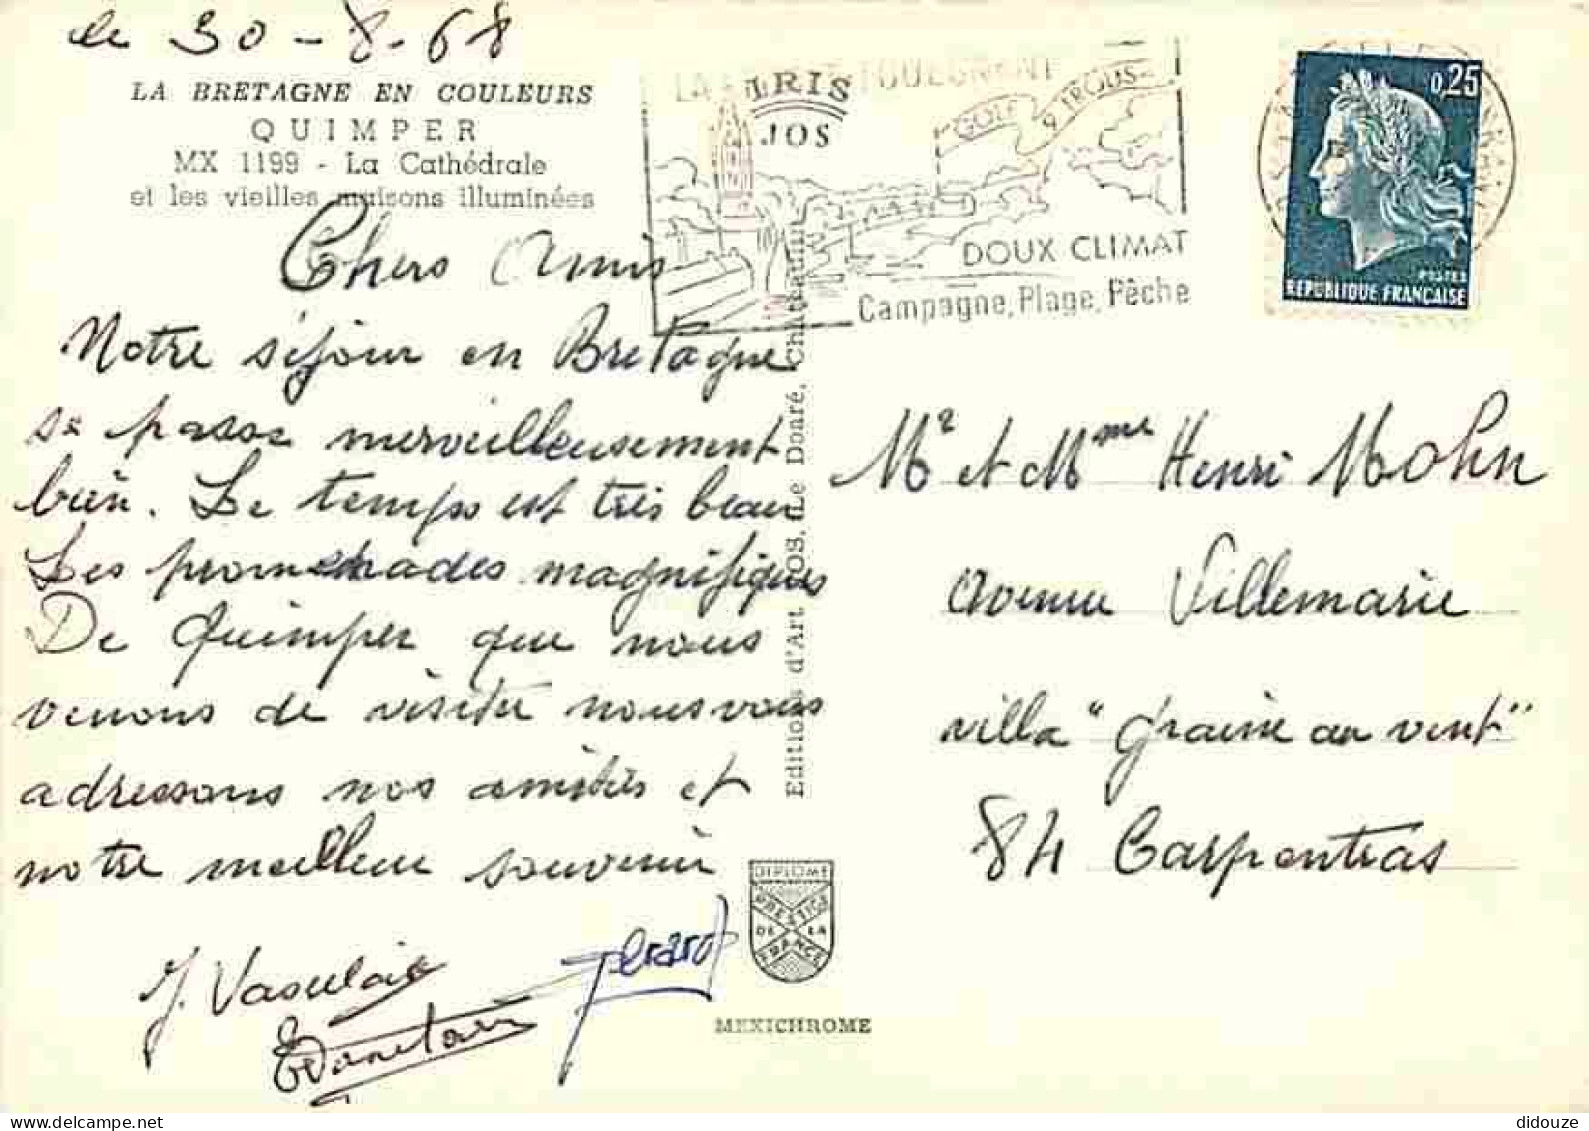 le 30-8-68
LA BRETAGNE EN COULEURS
QUIMPER
MX 1199 - La Cathédrale
et les vieilles maisons illuminées
IRIS
JOS
GOLF 9 TROUS
DOUX CLIMAT
Campagne, Plage, Pêche
0,25
POSTES
REPUBLIQUE FRANÇAISE
Chers Amis
Notre séjour en Bretagne
se passe merveilleusement
bien. Le temps est très beau
Les promenades magnifiques
De Quimper que nous
venons de visiter nous vous
adressons nos amitiés et
notre meilleur souvenir
Gérard
Editions d'Art JOS, Le Doaré, Chateaulin
Mr et Mme Henri Mohn
Avenue Villemarie
villa "graine au vent"
84 Carpentras
DIPLOME
PRESTIGE
DE LA
FRANCE
MEXICHROME
delcampe.net
didouze